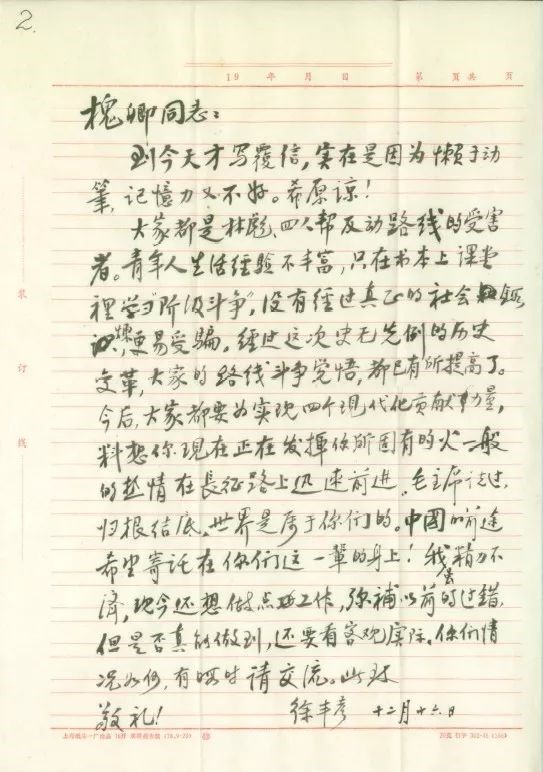 2.
19 年 月 日 第 页共 页
槐卿同志：
到今天才写覆信，实在是因为懒于动
筆，记憶力又不好。希原谅！
大家都是林彪、四人帮反动路线的受害
者。青年人生活经验不丰富，只在书本上课堂
裡学习“阶级斗争”，没有经过真正的社会锻
煉，更易受骗。经过这次史无先例的历史
变革，大家的路线斗争觉悟，都已有所提高了。
今后，大家都要为实现四个现代化贡献力量，
料想你现在正在发揮你所固有的火一般
的热情在長征路上迅速前进。毛主席说过，
归根结底，世界是属于你们的。中國的前途
希望寄託在你们这一輩的身上！我精力不
济，现今还想做点工作，弥補以前的过错，
但是否真能做到，还要看客观实际。你们情
况如何，有暇时请交流。此致
敬礼！ 徐丰彦 十二月十六日
装
订
线